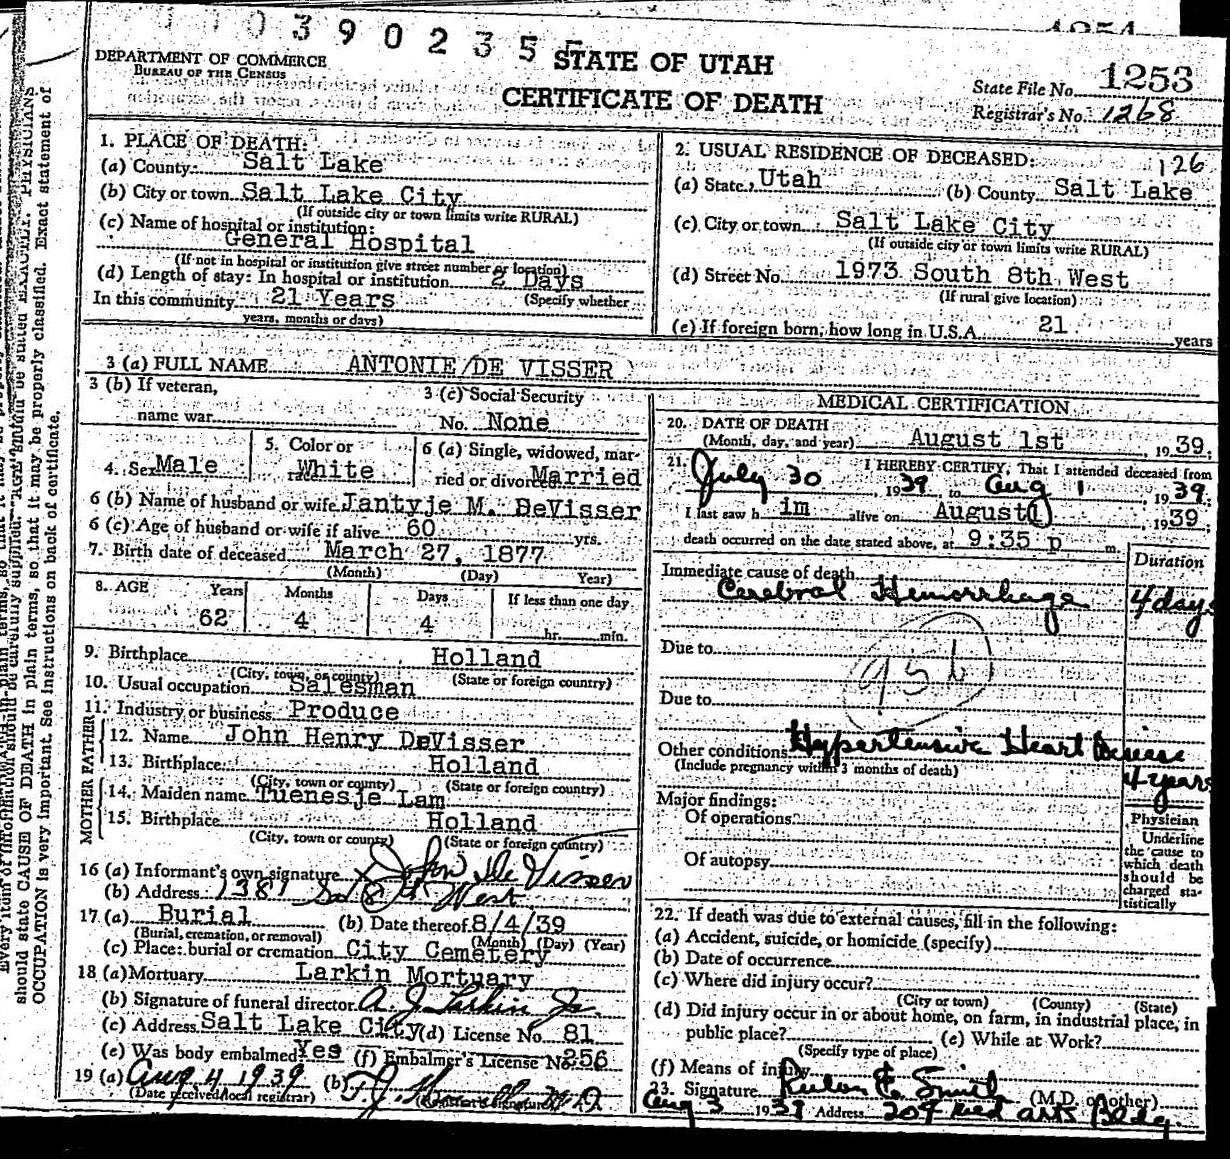 0 3 9 0 2 3 5
1254
DEPARTMENT OF COMMERCE
BUREAU OF THE CENSUS
STATE OF UTAH
CERTIFICATE OF DEATH
State File No. 1253
Registrar's No. 1268
1. PLACE OF DEATH:
(a) County Salt Lake
(b) City or town Salt Lake City
(If outside city or town limits write RURAL)
(c) Name of hospital or institution:
General Hospital
(If not in hospital or institution give street number or location)
(d) Length of stay: In hospital or institution 2 Days
In this community 21 Years (Specify whether
years, months or days)
2. USUAL RESIDENCE OF DECEASED: 126
(a) State Utah (b) County Salt Lake
(c) City or town Salt Lake City
(If outside city or town limits write RURAL)
(d) Street No. 1973 South 8th West
(If rural give location)
(e) If foreign born, how long in U.S.A. 21 years
3 (a) FULL NAME ANTONIE DE VISSER
3 (b) If veteran,
name war
3 (c) Social Security
No. None
4. Sex Male
5. Color or
race White
6 (a) Single, widowed, mar-
ried or divorced Married
6 (b) Name of husband or wife Jantyje M. DeVisser
6 (c) Age of husband or wife if alive 60 yrs.
7. Birth date of deceased March 27, 1877
(Month) (Day) Year)
8. AGE Years Months Days If less than one day
62 4 4 hr. min.
9. Birthplace Holland
(City, town, or county) (State or foreign country)
10. Usual occupation Salesman
11. Industry or business Produce
FATHER
12. Name John Henry DeVisser
13. Birthplace Holland
(City, town or county) (State or foreign country)
MOTHER
14. Maiden name Tuenesje Lam
15. Birthplace Holland
(City, town or county) (State or foreign country)
16 (a) Informant's own signature John De Visser
(b) Address 1381 So 8th West
17 (a) Burial (b) Date thereof 8/4/39
(Burial, cremation, or removal) (Month) (Day) (Year)
(c) Place: burial or cremation City Cemetery
18 (a) Mortuary Larkin Mortuary
(b) Signature of funeral director A. J. Larkin Jr.
(c) Address Salt Lake City (d) License No. 81
(e) Was body embalmed Yes (f) Embalmer's License No. 256
19 (a) Aug 4 1939 (b)
(Date received local registrar) (Registrar's signature)
MEDICAL CERTIFICATION
20. DATE OF DEATH
(Month, day, and year) August 1st, 1939.
21. I HEREBY CERTIFY, That I attended deceased from
July 30, 1939 to Aug 1 1939.
I last saw h im alive on August 1, 1939
death occurred on the date stated above, at 9:35 p m.
Duration
Immediate cause of death
Cerebral Hemorrhage 4 days
Due to
956
Due to
Other conditions Hypertensive Heart Disease
(Include pregnancy within 3 months of death) 4 years
Major findings:
Of operations
Of autopsy
Physician
Underline
the cause to
which death
should be
charged sta-
tistically
22. If death was due to external causes, fill in the following:
(a) Accident, suicide, or homicide (specify)
(b) Date of occurrence
(c) Where did injury occur?
(City or town) (County) (State)
(d) Did injury occur in or about home, on farm, in industrial place, in
public place? (e) While at Work?
(Specify type of place)
(f) Means of injury
23. Signature Smith (M.D. or other)
Aug 3 1939 Address 209 Med arts Bldg.
should state CAUSE OF DEATH in plain terms, so that it may be properly classified. Exact statement of
OCCUPATION is very important. See instructions on back of certificate.